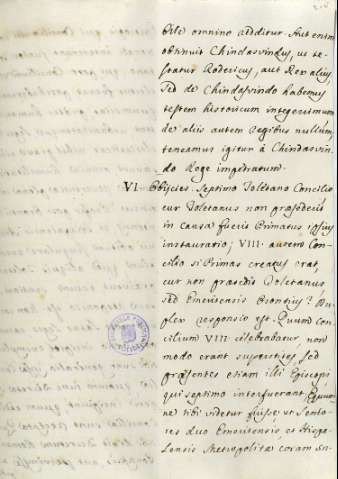 bile omnino additur. Aut enim
obtinuit Chindasvindus, ut tes-
tatur Rodericus, aut Rex alius,
sed de Chindasvindo habemus
testem historicum integerrimum
de aliis autem Regibus nullum,
teneamus igitur à Chindasvin-
do Rege imperatum.
VI. Obijcies. Septimo Toletano Concilio
cur Toletanus non præsederit
in causa fuerit Primatus ipsius
instauratio; VIII. autem Con-
cilio si Primas creatus erat,
cur non præsedit Toletanus,
sed Emeritensis Orontius? Du-
plex responsio est. Quum Con-
cilium VIII. celebrabatur, non
modo erant superstites sed
præsentes etiam illi Episcopi
qui septimo interfuerant.
ne tibi videtur fuisse, ut Sento-
res duo Emeritensis, et Hispa-
lensis Metropolitæ coram